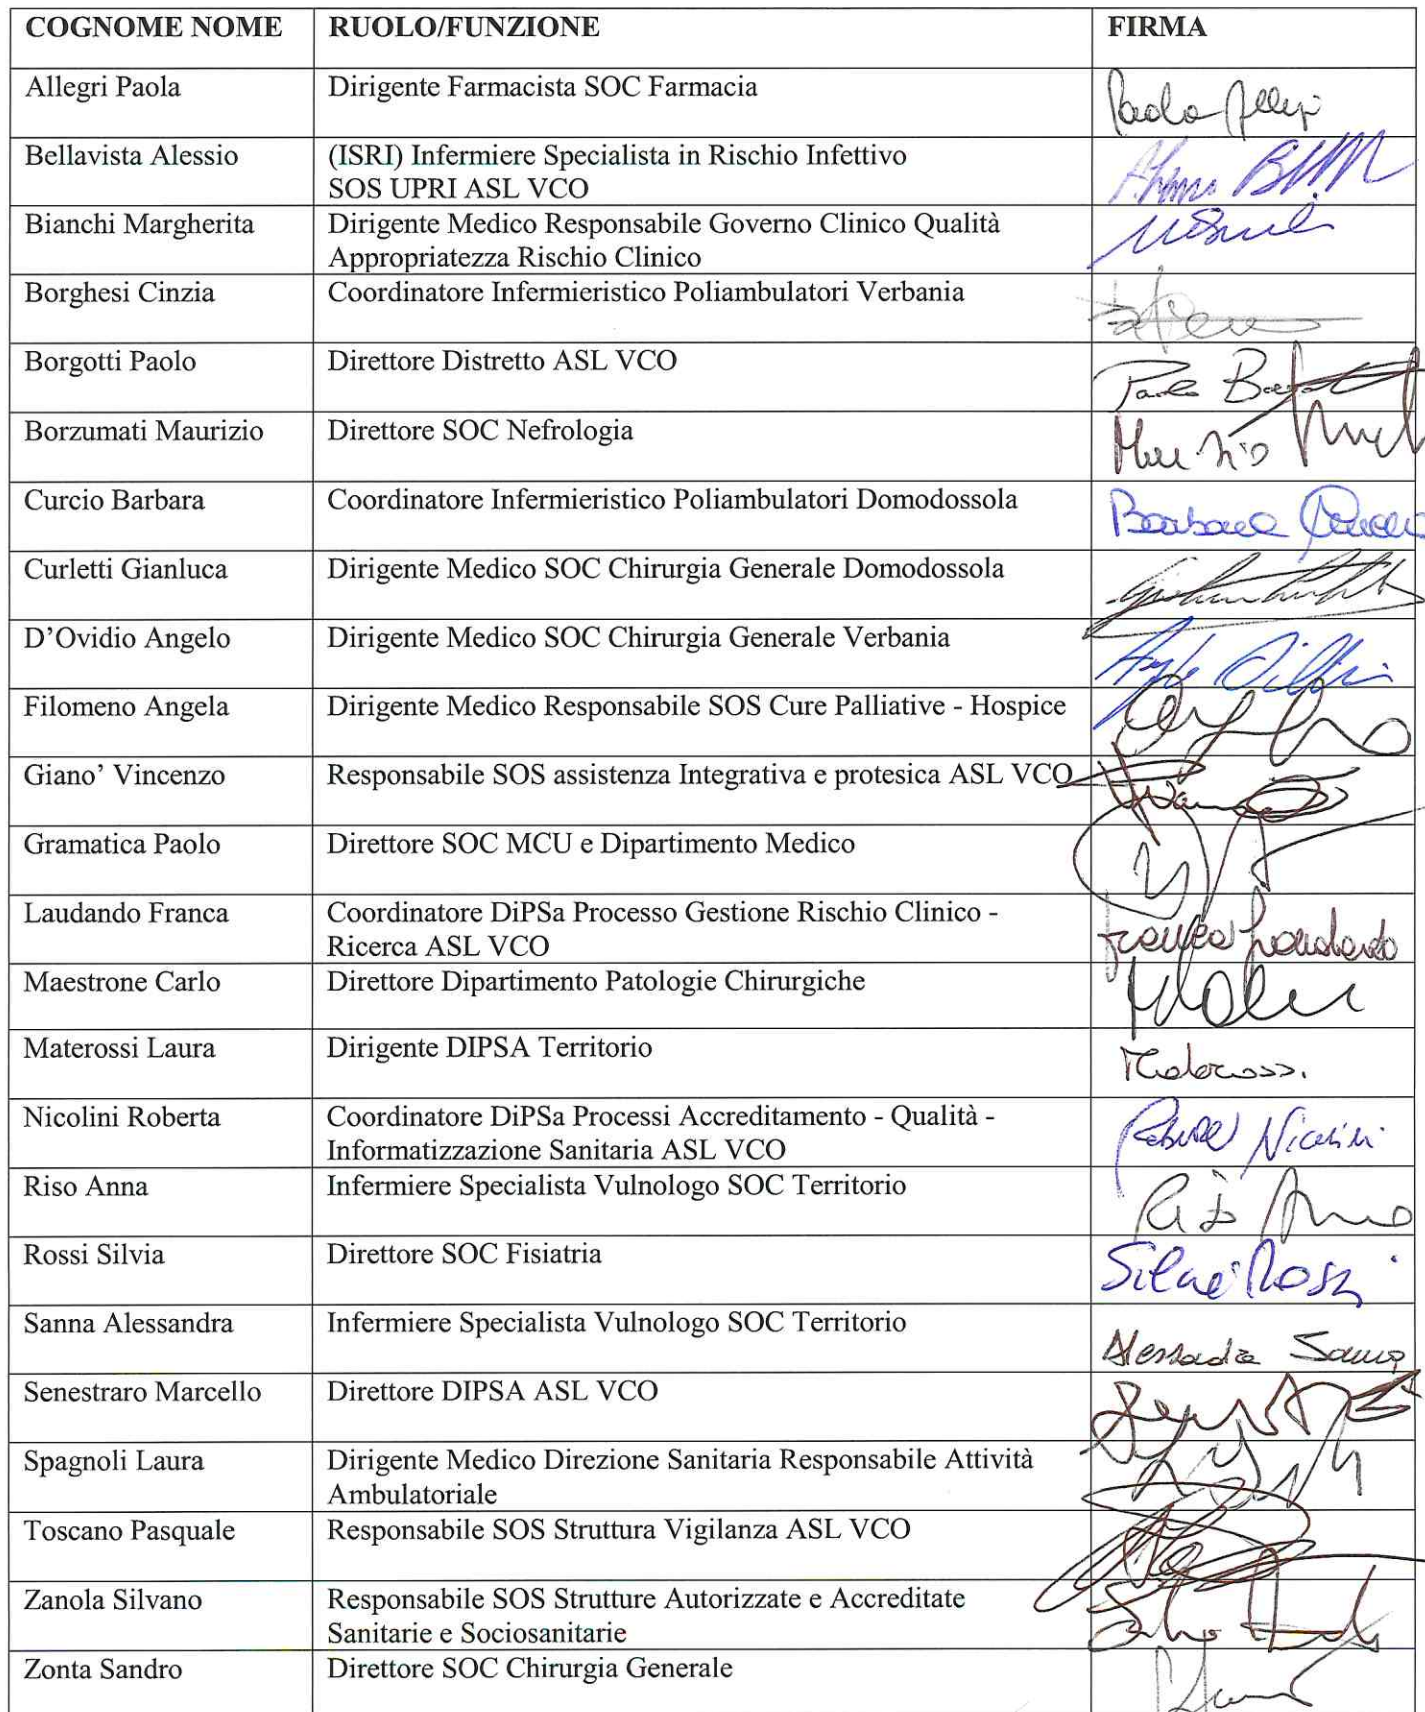 COGNOME NOME RUOLO/FUNZIONE FIRMA
Allegri Paola Dirigente Farmacista SOC Farmacia Paola Allegri
Bellavista Alessio (ISRI) Infermiere Specialista in Rischio Infettivo
SOS UPRI ASL VCO
Bianchi Margherita Dirigente Medico Responsabile Governo Clinico Qualità
Appropriatezza Rischio Clinico
Borghesi Cinzia Coordinatore Infermieristico Poliambulatori Verbania
Borgotti Paolo Direttore Distretto ASL VCO Paolo
Borzumati Maurizio Direttore SOC Nefrologia Maurizio
Curcio Barbara Coordinatore Infermieristico Poliambulatori Domodossola Barbara Curcio
Curletti Gianluca Dirigente Medico SOC Chirurgia Generale Domodossola
D'Ovidio Angelo Dirigente Medico SOC Chirurgia Generale Verbania
Filomeno Angela Dirigente Medico Responsabile SOS Cure Palliative - Hospice
Giano' Vincenzo Responsabile SOS assistenza Integrativa e protesica ASL VCO
Gramatica Paolo Direttore SOC MCU e Dipartimento Medico
Laudando Franca Coordinatore DiPSa Processo Gestione Rischio Clinico -
Ricerca ASL VCO Franca Laudando
Maestrone Carlo Direttore Dipartimento Patologie Chirurgiche
Materossi Laura Dirigente DIPSA Territorio Materossi
Nicolini Roberta Coordinatore DiPSa Processi Accreditamento - Qualità -
Informatizzazione Sanitaria ASL VCO Roberta Nicolini
Riso Anna Infermiere Specialista Vulnologo SOC Territorio Riso Anna
Rossi Silvia Direttore SOC Fisiatria Silvia Rossi
Sanna Alessandra Infermiere Specialista Vulnologo SOC Territorio Alessandra Sanna
Senestraro Marcello Direttore DIPSA ASL VCO
Spagnoli Laura Dirigente Medico Direzione Sanitaria Responsabile Attività
Ambulatoriale
Toscano Pasquale Responsabile SOS Struttura Vigilanza ASL VCO
Zanola Silvano Responsabile SOS Strutture Autorizzate e Accreditate
Sanitarie e Sociosanitarie
Zonta Sandro Direttore SOC Chirurgia Generale